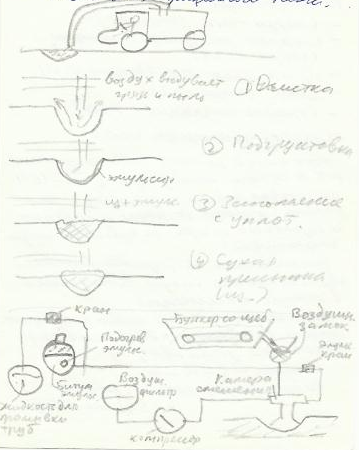 воздух выдувает
грязь и пыль
① Очистка
② Подгрунтовка
эмульсия
щ + эмул.
③ Заполнение
с уплот.
④ Сухая
присыпка
(щ..)
кран
Бункер со щеб.
Воздушн.
замок
Подогрев
эмульс.
кран
Битум
эмульс.
Воздуш.
фильтр
Камера
смешения
Жидкость для
промывки
труб
компрессор